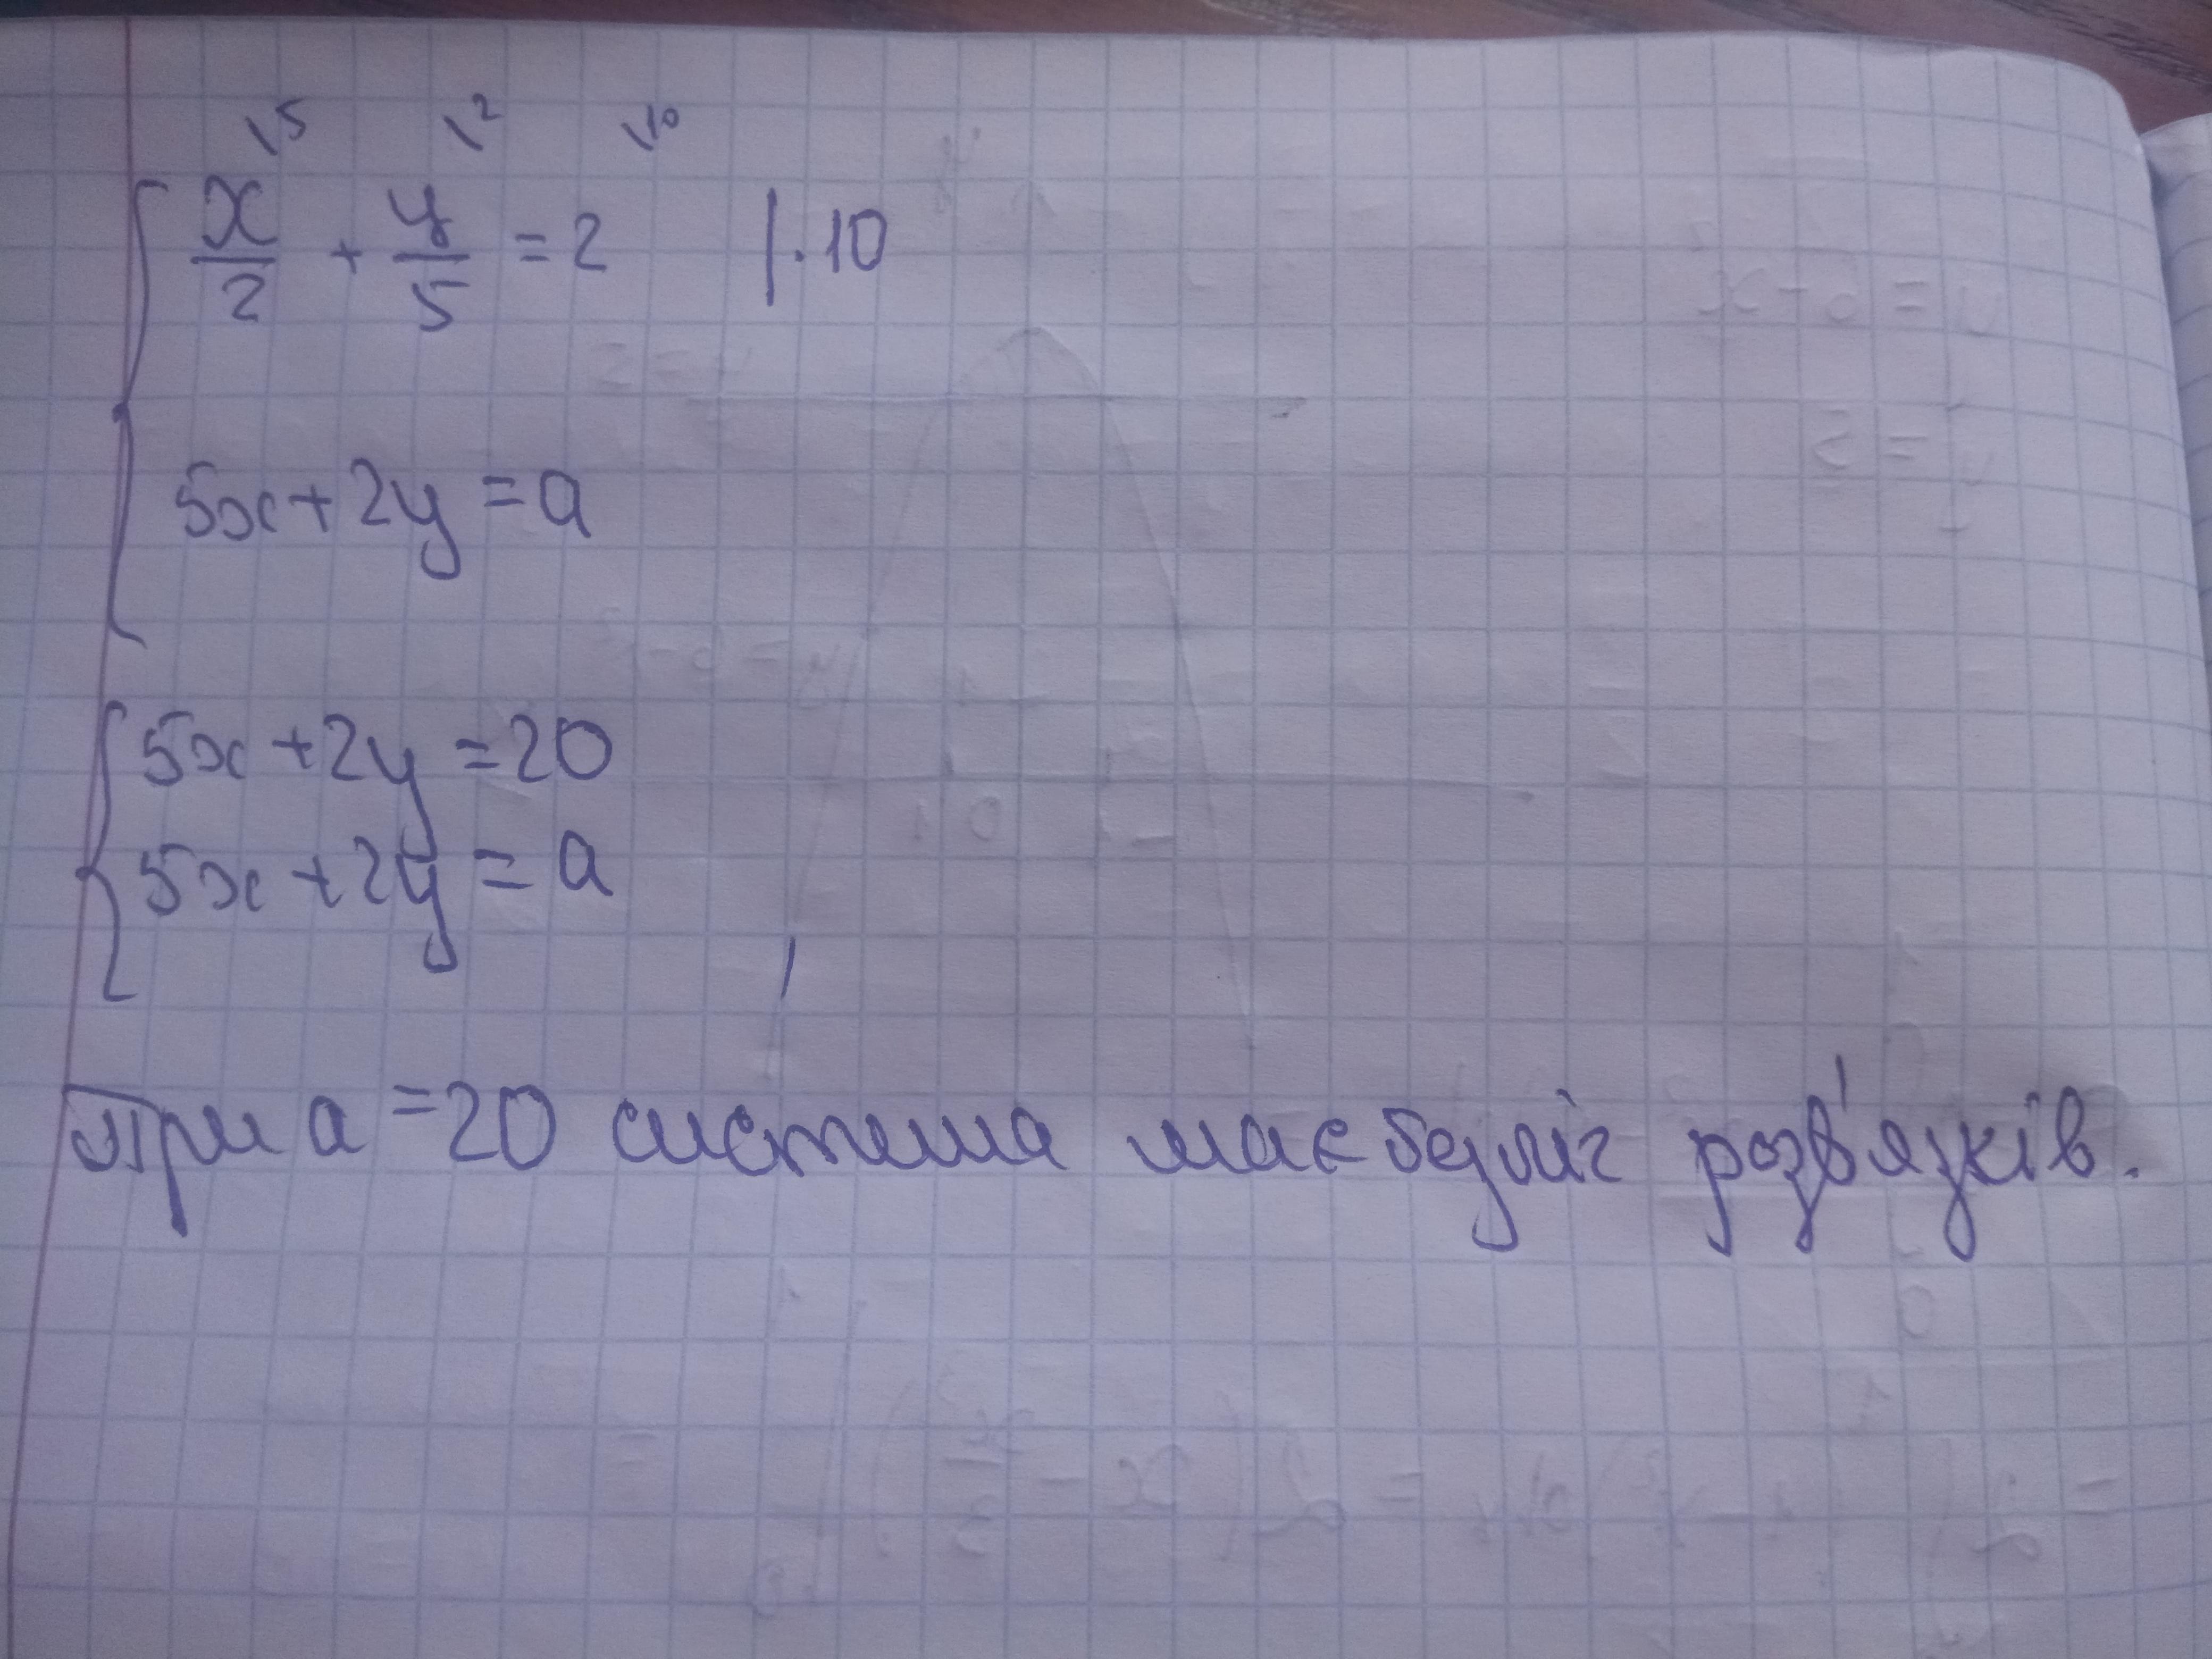 \5 \2 \10
x/2 + y/5 = 2 | · 10
5x + 2y = a
5x + 2y = 20
5x + 2y = a
При a = 20 система має безліч розв'язків.